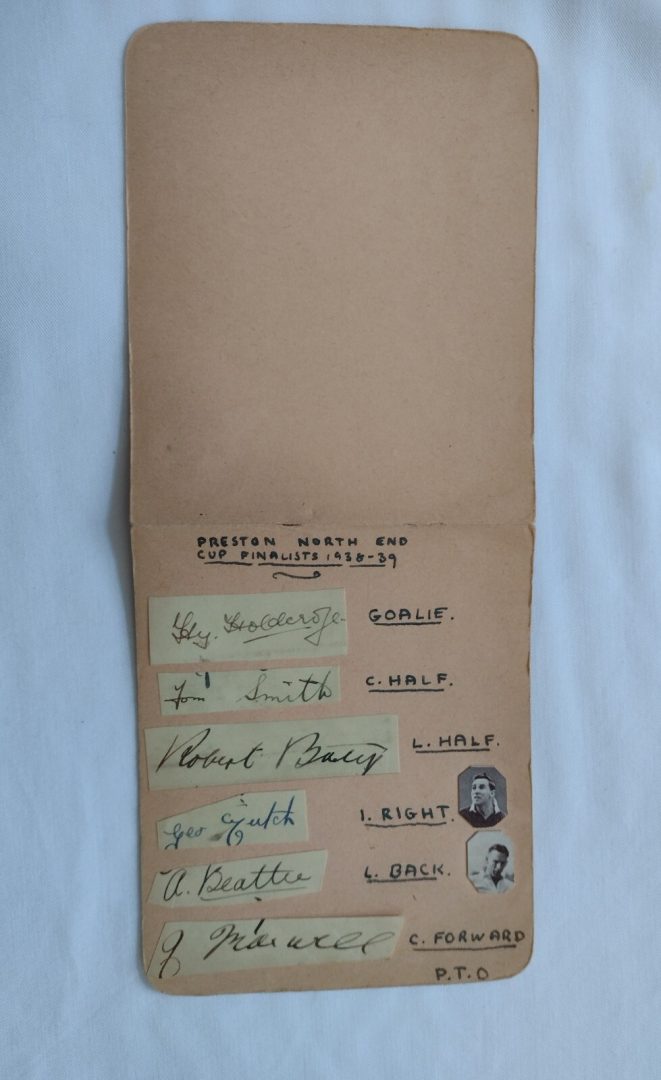 PRESTON NORTH END
CUP FINALISTS 1938-39
Hy. Holdcroft GOALIE.
Tom Smith C. HALF.
Robert Batey L. HALF.
Geo Mutch I. RIGHT.
A. Beattie L. BACK.
J Maxwell C. FORWARD
P.T.O